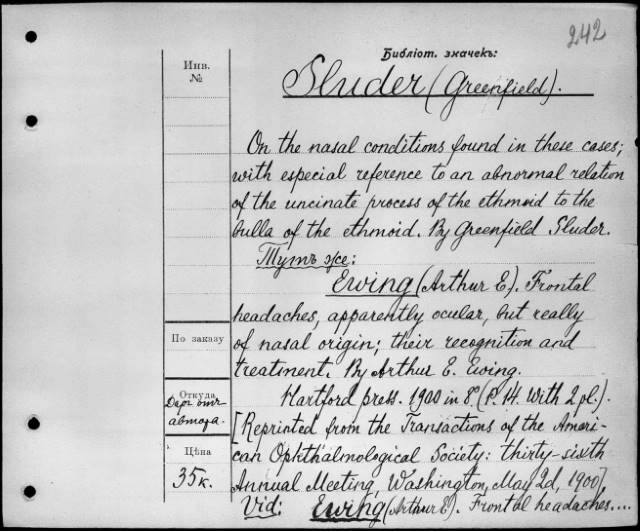 242
Библіот. значекъ:
Инв.
№
Sluder (Greenfield).
On the nasal conditions found in these cases;
with especial reference to an abnormal relation
of the uncinate process of the ethmoid to the
bulla of the ethmoid. By Greenfield Sluder.
Тутъ же:
Ewing (Arthur E.). Frontal
headaches, apparently ocular, but really
of nasal origin; their recognition and
treatment. By Arthur E. Ewing.
Hartford press. 1900 in 8º (P. 14. With 2 pl.).
[Reprinted from the Transactions of the Ameri-
can Ophthalmological Society: thirty-sixth
Annual Meeting, Washington, May 2d, 1900].
Vid: Ewing (Arthur E). Frontal headaches....
По заказу
Откуда
Даръ отъ
автора.
Цѣна
35к.